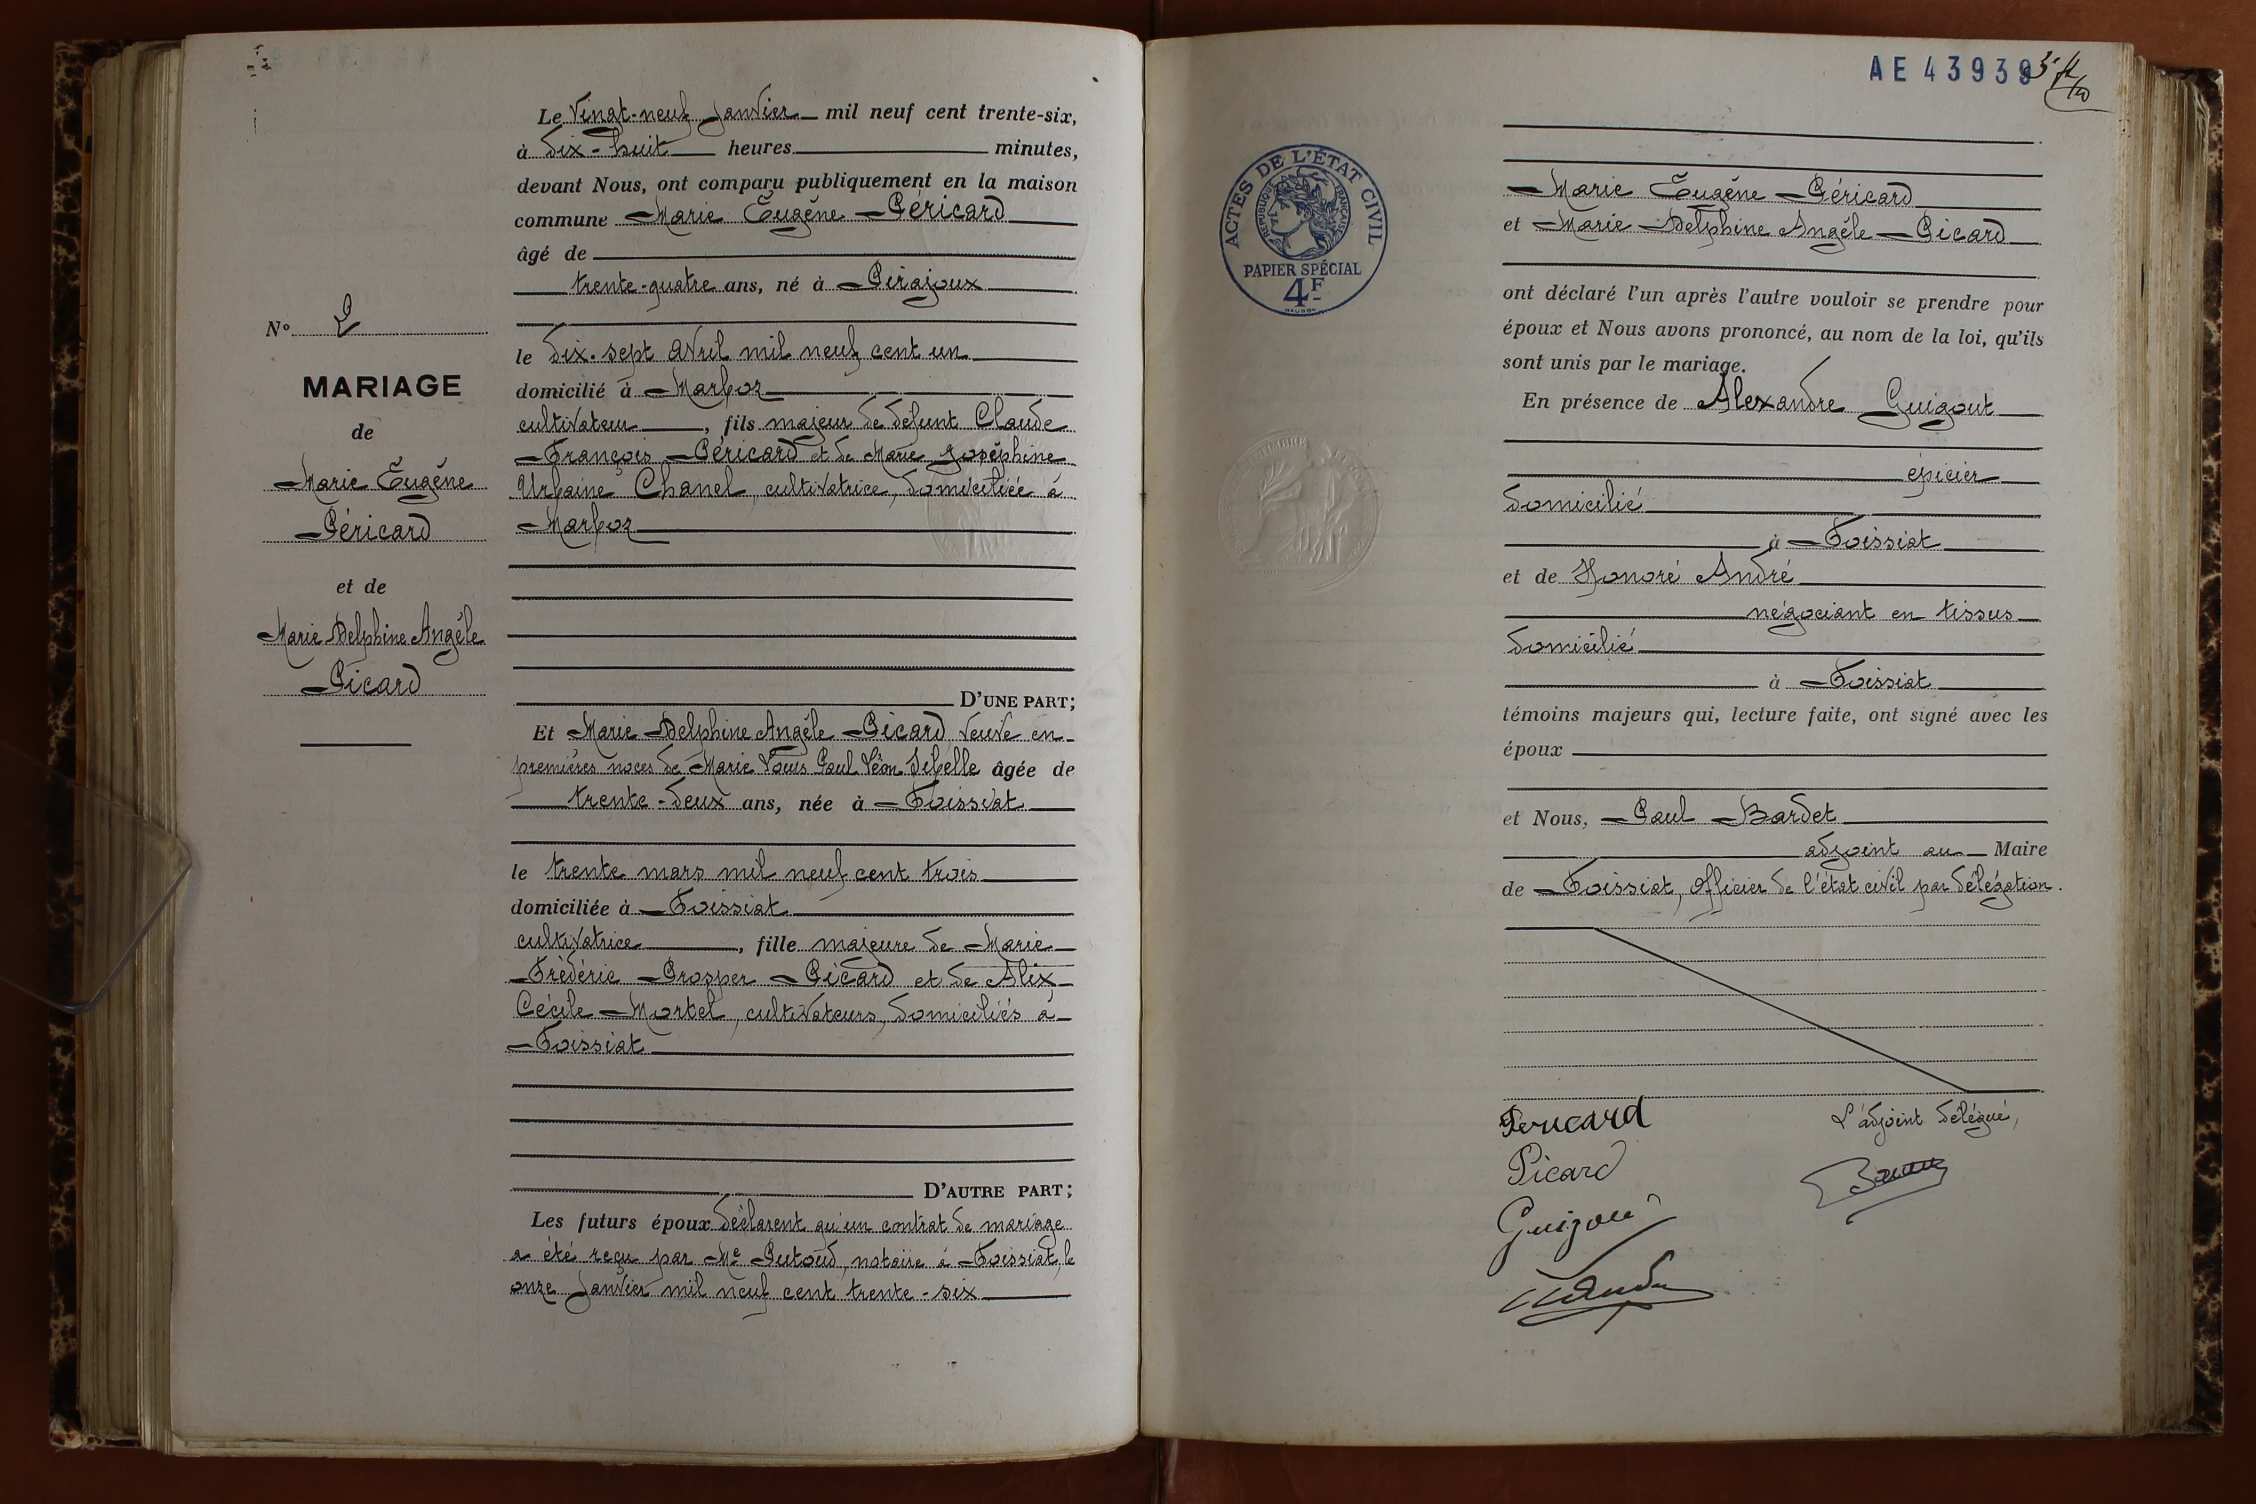 Le vingt-neuf Janvier mil neuf cent trente-six,
à dix-huit heures minutes,
devant Nous, ont comparu publiquement en la maison
commune Marie Eugène Péricard
âgé de
trente-quatre ans, né à Pirajoux
le dix-sept avril mil neuf cent un
domicilié à Marboz
cultivateur, fils majeur de défunt Claude
François Péricard et de Marie Joséphine
Urbaine Chanel, cultivatrice, domiciliée à
Marboz
D'UNE PART;
Et Marie Delphine Angèle Picard veuve en
premières noces de Marie Louis Paul Léon Sibelle âgée de
trente-deux ans, née à Foissiat
le trente mars mil neuf cent trois
domiciliée à Foissiat
cultivatrice, fille majeure de Marie
Frédéric Prosper Picard et de Alix
Cécile Mortel, cultivateurs, domiciliés à
Foissiat
D'AUTRE PART;
Les futurs époux déclarent qu'un contrat de mariage
a été reçu par Me Putoud, notaire à Foissiat, le
onze Janvier mil neuf cent trente-six
No 2
MARIAGE
de
Marie Eugène
Péricard
et de
Marie Delphine Angèle
Picard
AE 43939
ACTES DE L'ÉTAT CIVIL
RÉPUBLIQUE FRANÇAISE
PAPIER SPÉCIAL
4F
Marie Eugène Péricard
et Marie Delphine Angèle Picard
ont déclaré l'un après l'autre vouloir se prendre pour
époux et Nous avons prononcé, au nom de la loi, qu'ils
sont unis par le mariage.
En présence de Alexandre Guigout
épicier
domicilié
à Foissiat
et de Honoré André
négociant en tissus
domicilié
à Foissiat
témoins majeurs qui, lecture faite, ont signé avec les
époux
et Nous, Paul Bardet
adjoint au Maire
de Foissiat, officier de l'état civil par délégation.
Pericard
Picard
Guigout
L'adjoint délégué,